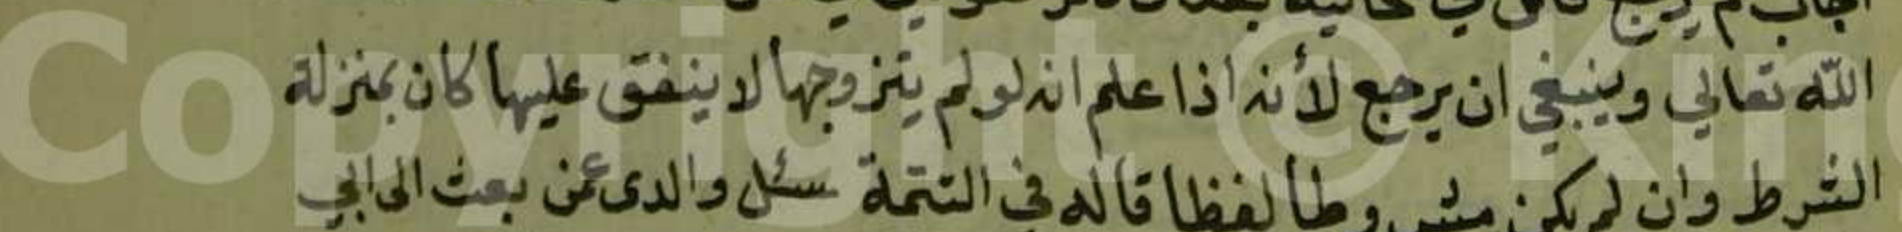 الله تعالي وينبغي ان يرجع لأنه اذا علم انه لو لم يتزوجها لا ينفق عليها كان بمنزلة
الشرط وان لم يكن مشروطا لفظا قاله في التتمة سئل والدى عمن بعث الى ابي
Copyright © King